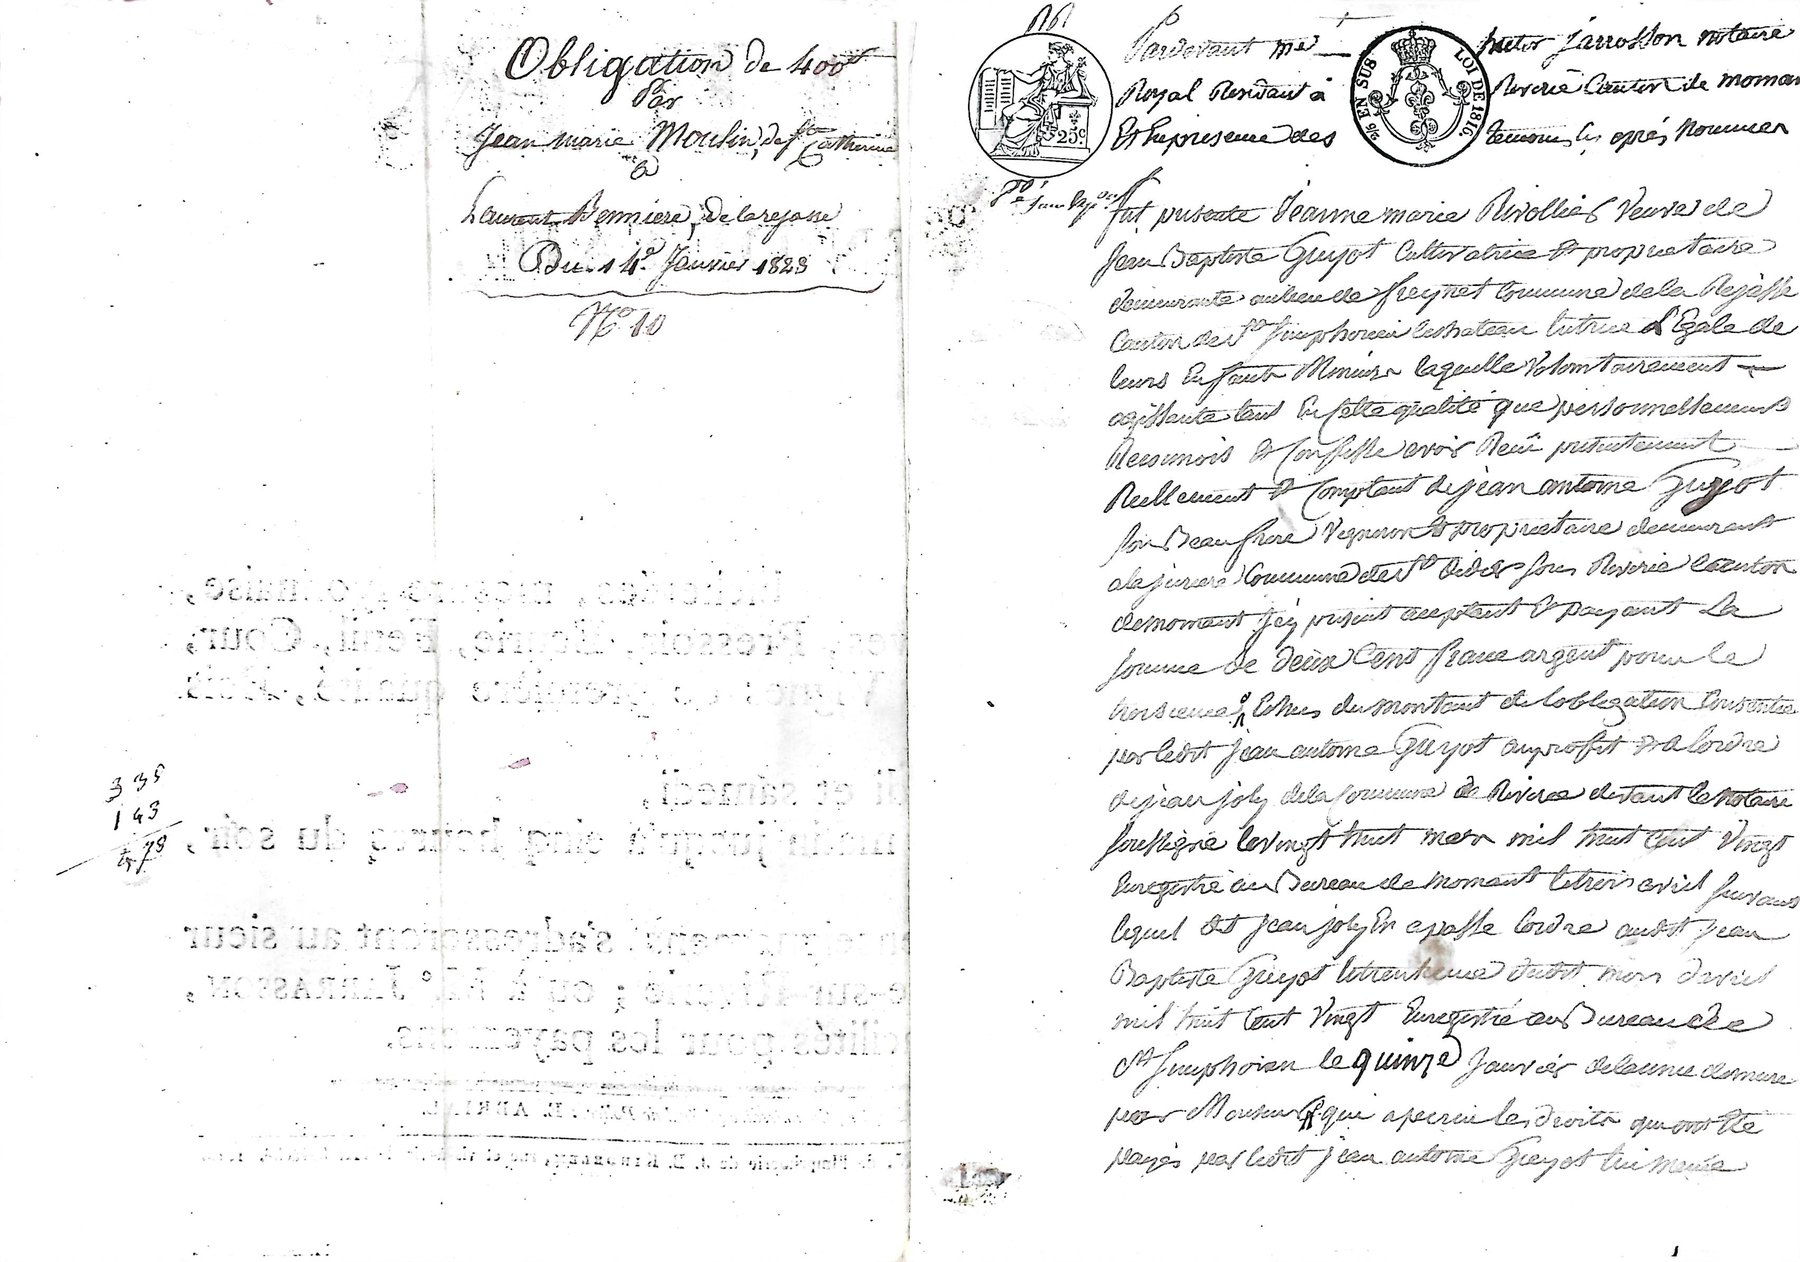 Obligation de 400f
Par
Jean marie Moulin, de Ste Catherine
a
Laurent Bernniere, de larejasse
Du 14e Janvier 1823
No 10
335
143
478
Pardevant me hector Jarrosson notaire
Royal Residant à Riverie Canton de mornan
Et En presence des temoins cy après nommer
25 c.
5/6 EN SUS LOI DE 1816
fut presente Jeanne marie Rivollier Veuve de
Jean Baptiste Guyot Cultivatrice & proprietaire
demeurante au lieu de Commune de la Rejasse
Canton de St Simphorien lechateau tutrice LEgale de
leurs Enfants Mineurs laquelle Volontairement
agissante tant En Cette qualité que personnellement
Reconnois & Confesse avoir Recu presentement
Reellement & Comptant de jean antoine Guyot
son Beau frere Vigneron & proprietaire demeurant
a la Commune de St didier sous Riverie Canton
de mornant icy present acceptant & payant La
somme de deux Cent franc argent pour le
Echus du montant de lobligation Consentie
par ledit jean antoine Guyot au proffit & a lordre
de jean joly de la Commune de Riverie devant le notaire
soussigné le vingt huit mars mil huit Cent Vingt
Enregistré au Bureau de mornant le trois avril suivant
lequel dit jean joly En a passé lordre audit jean
Baptiste Guyot le dudit mois davril
mil huit Cent Vingt Enregistré au Bureau de
St Simphorien le quinze Janvier de lannee derniere
par Monsieur qui a percu les droits qui ont Eté
payés par ledit jean antoine Guyot lui meme
et samedi,
matin jusqu'à cinq heures du soir,
s'adresseront au sieur
ou à Me JARRASSON,
pour les payemens.